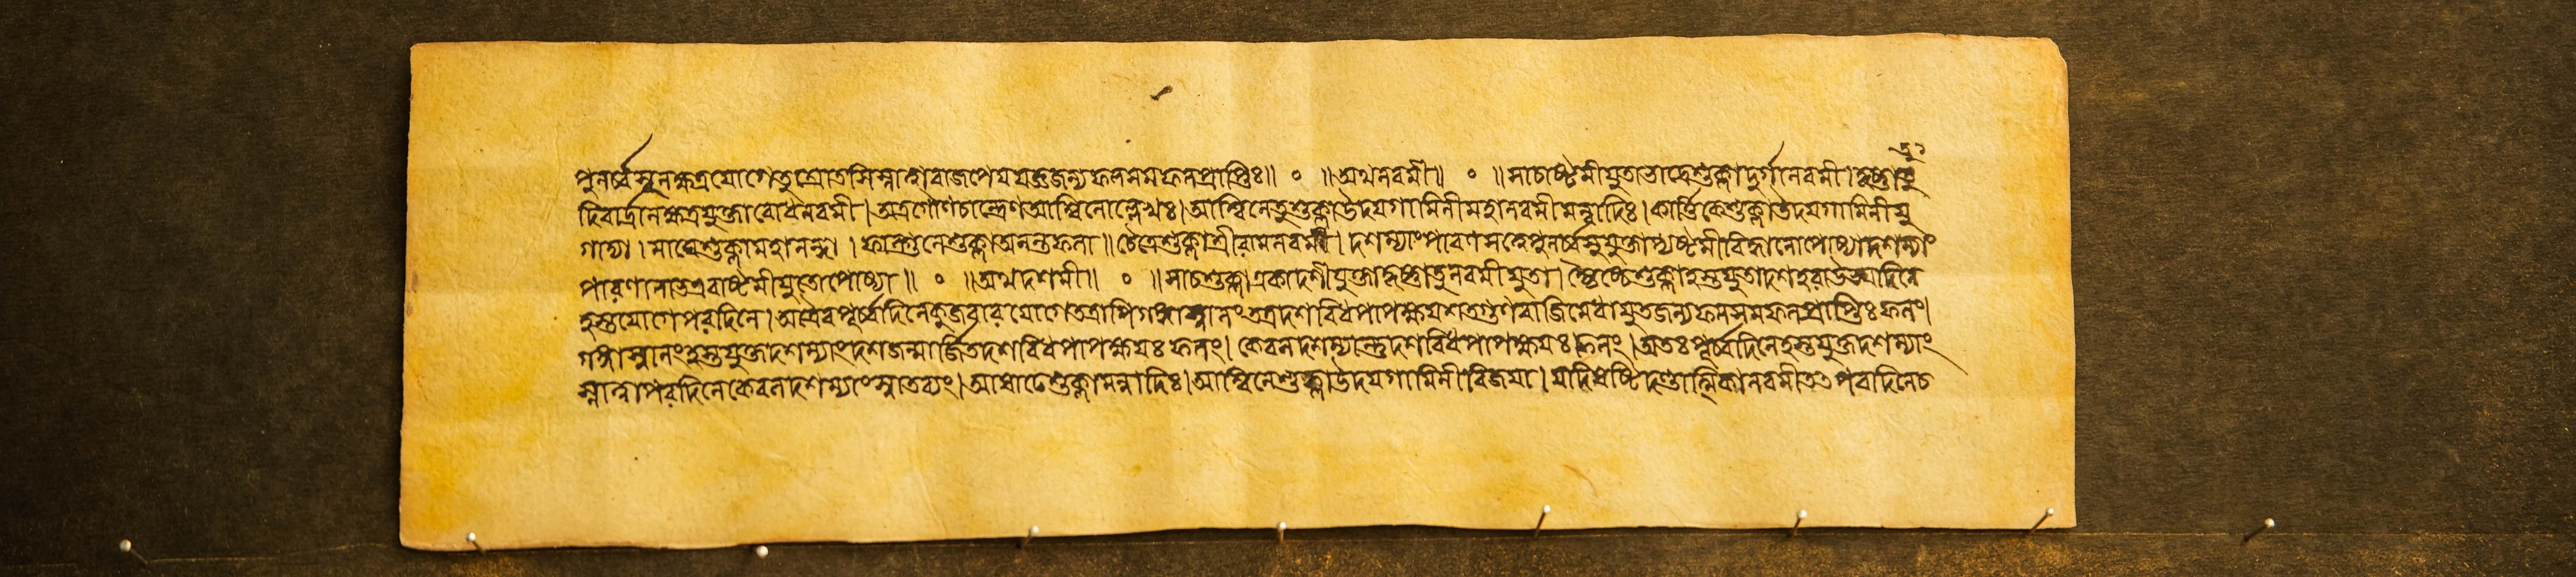 পুনর্ব্বসুনক্ষত্রযোগেতুস্রোতসিস্নাত্বাবাজপেযযজ্ঞজন্যফলসমফলপ্রাপ্তিঃ॥ ० ॥অথনবমী॥ ० ॥সাচাষ্টমীযুতাভাদ্রেশুক্লাদুর্গানবমী।কৃষ্ণাতু
দিবার্দ্রানক্ষত্রযুক্তাবোধনবমী।অত্রগৌণচান্দ্রেণআশ্বিনোল্লেখঃ।আশ্বিনেতুশুক্লাউদযগামিনীমহানবমীমন্বাদিঃ।কার্ত্তিকেশুক্লাউদযগামিনীযু
গাদ্যা।মাঘেশুক্লামহানন্দা।ফাল্গুনেশুক্লাঅনন্তফলা॥চৈত্রেশুক্লাশ্রীরামনবমী।দশম্যাংপারণসত্ত্বেপুনর্ব্বসুযুক্তাপ্যষ্টমীবিদ্ধানোপোষ্যাদশম্যাং
পারণালাভএবাষ্টমীযুতোপোষ্যা॥ ० ॥অথদশমী॥ ० ॥সাচশুক্লাএকাদশীযুক্তাকৃষ্ণাতুনবমীযুতা।জ্যৈষ্ঠেশুক্লাহস্তযুতাদশহরাউভযদিনে
হস্তযোগেপরদিনে।অত্রৈবপূর্ব্বদিনেকুজবারযোগেতত্রাপিগঙ্গাস্নানংতত্রদশবিধপাপক্ষযশতগুণবাজিমেধাযুতজন্যফলসমফলপ্রাপ্তিঃফলং।
গঙ্গাস্নানংহস্তযুক্তদশম্যাংদশজন্মার্জিতদশবিধপাপক্ষযঃফলং।কেবলদশম্যান্তুদশবিধপাপক্ষযঃফলং।অতঃপূর্ব্বদিনেহস্তযুক্তদশম্যাং
স্নাত্বাপরদিনেকেবলদশম্যাংস্নাতব্যং।আষাঢেশুক্লামন্বাদিঃ।আশ্বিনেশুক্লাউদযগামিনীবিজযা।যদিষষ্টিদণ্ডাত্মিকানবমীততপরদিনেচ